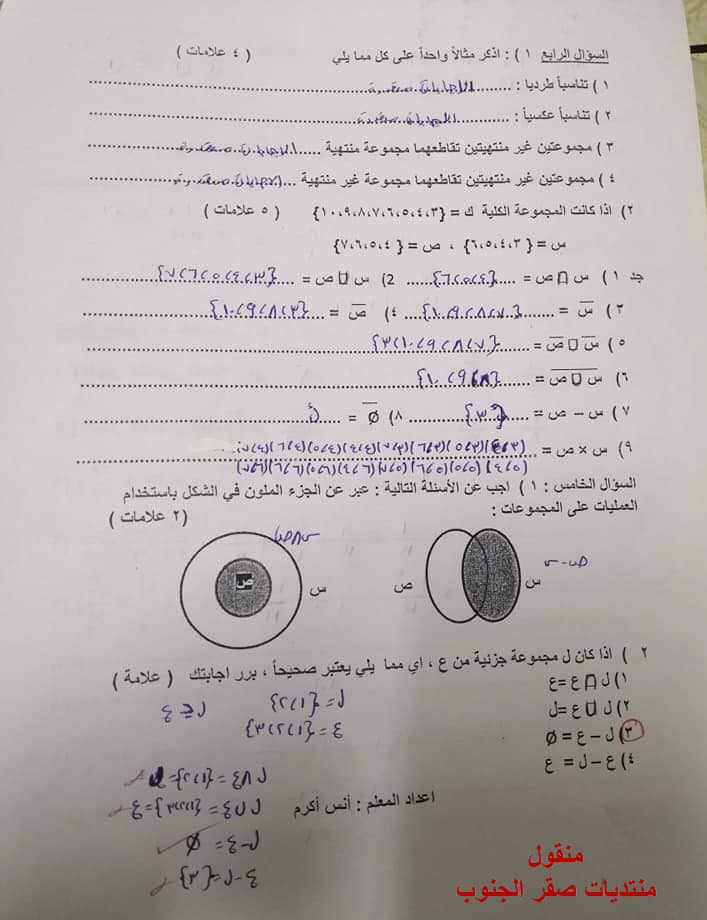 السؤال الرابع ١ ) : اذكر مثالاً واحداً على كل مما يلي ( ٤ علامات )
١ ) تناسباً طردياً :
٢ ) تناسباً عكسياً :
٣ ) مجموعتين غير منتهيتين تقاطعهما مجموعة منتهية
٤ ) مجموعتين غير منتهيتين تقاطعهما مجموعة غير منتهية
٢) اذا كانت المجموعة الكلية ك = {١٠،٩،٨،٧،٦،٥،٤،٣} ( ٥ علامات )
س = { ٦،٥،٤،٣} ، ص = { ٧،٦،٥،٤}
جد ١ ) س ∩ ص = {٤،٥،٦} 2) س ∪ ص = {٣،٤،٥،٦،٧}
٣ ) س̅ = {٧،٨،٩،١٠} ٤) ص̅ = {٣،٨،٩،١٠}
٥ ) س̅ ∪ ص̅ = {٧،٨،٩،١٠،٣}
٦) س ∪ ص = {٨،٩،١٠}
٧ ) س – ص = {٣} ٨) Ø̅ = ك
٩ ) س × ص =
السؤال الخامس : ١ ) اجب عن الأسئلة التالية : عبر عن الجزء الملون في الشكل باستخدام
العمليات على المجموعات : ( ٢ علامات )
س∩ص
ص
س
ص
س
٢ ) اذا كان ل مجموعة جزئية من ع ، اي مما يلي يعتبر صحيحاً ، برر اجابتك ( علامة )
١) ل ∩ ع =ع
ل = {١،٢} ل ⊆ ع
٢) ل ∪ ع =ل
ع = {١،٢،٣}
٣) ل – ع = Ø
٤) ع – ل = ع
ل ∩ ع = {١،٢} = ل
اعداد المعلم : أنس أكرم
ل ∪ ع = {١،٢،٣} = ع
ل - ع = Ø
ع - ل = {٣}
منقول
منتديات صقر الجنوب